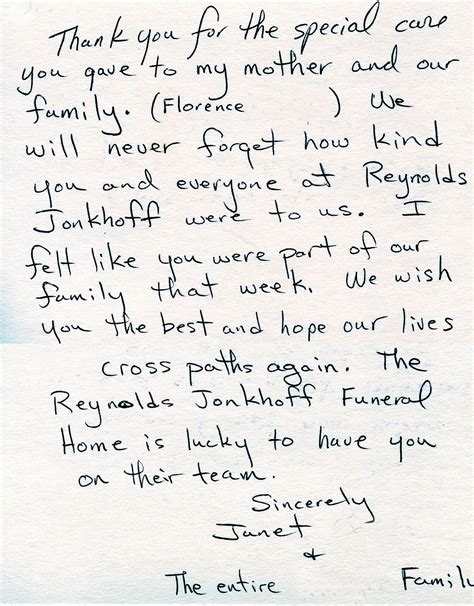 Thank you for the special care
you gave to my mother and our
family. (Florence          ) We
will never forget how kind
you and everyone at Reynolds
Jonkhoff were to us. I
felt like you were part of our
family that week. We wish
you the best and hope our lives
cross paths again. The
Reynolds Jonkhoff Funeral
Home is lucky to have you
on their team.
Sincerely
Janet
&
The entire          Family